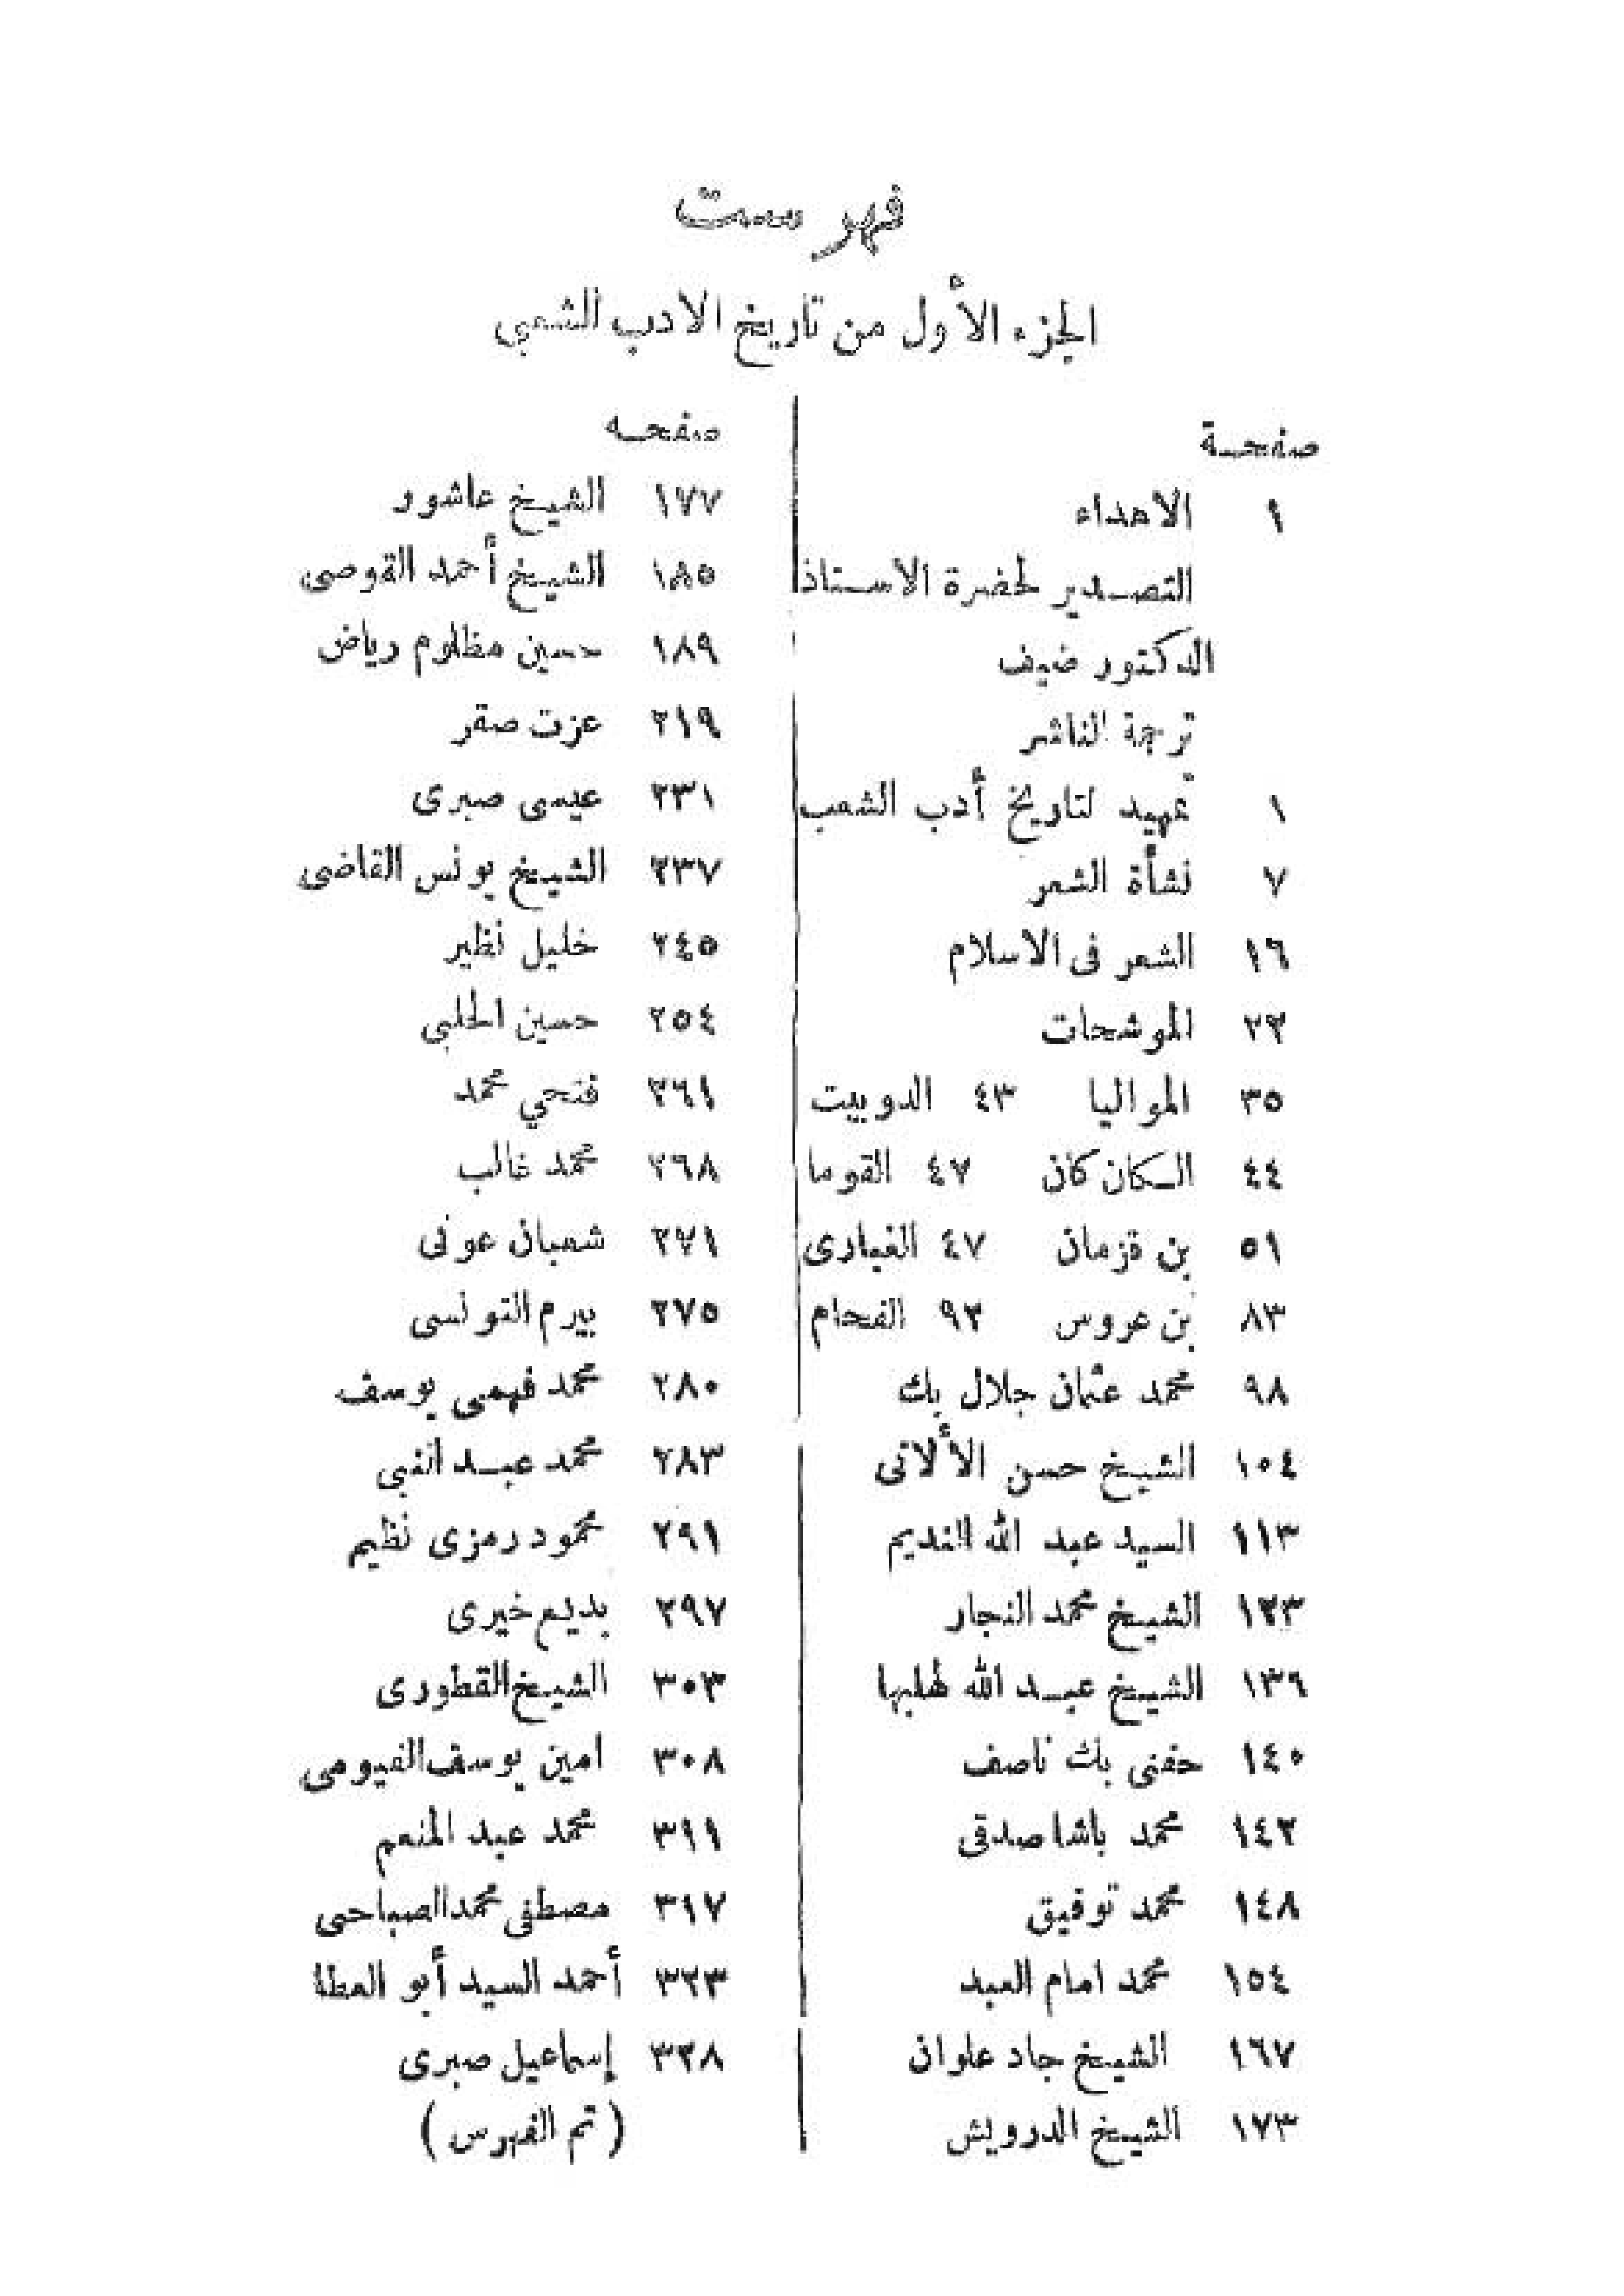 فهرست
الجزء الأول من تاريخ الادب الشعبي
صفحة
١ الاهداء
التصدير لحضرة الاستاذ
الدكتور ضيف
ترجمة الناشر
١ تمهيد لتاريخ أدب الشعب
٧ نشأة الشعر
١٦ الشعر فى الاسلام
٢٣ الموشحات
٣٥ المواليا ٤٣ الدوبيت
٤٤ الكان كان ٤٧ القوما
٥١ بن قزمان ٤٧ الغبارى
٨٣ بن عروس ٩٣ الفحام
٩٨ محمد عثمان جلال بك
١٠٤ الشيخ حسن الألاتى
١١٣ السيد عبد الله النديم
١٢٣ الشيخ محمد النجار
١٣٩ الشيخ عبد الله لهلبها
١٤٠ حفنى بك ناصف
١٤٢ محمد باشا صدقى
١٤٨ محمد توفيق
١٥٤ محمد امام العبد
١٦٧ الشيخ جاد علوان
١٧٣ الشيخ الدرويش
صفحه
١٧٧ الشيخ عاشور
١٨٥ الشيخ أحمد القوصى
١٨٩ حسين مظلوم رياض
٢١٩ عزت صقر
٢٣١ عيسى صبرى
٢٣٧ الشيخ يونس القاضى
٢٤٥ خليل نظير
٢٥٤ حسين الحلبى
٢٦١ فتحي محمد
٢٦٨ محمد غالب
٢٧١ شعبان عونى
٢٧٥ بيرم التونسى
٢٨٠ محمد فهمى يوسف
٢٨٣ محمد عبد النبى
٢٩١ محمود رمزى نظيم
٢٩٧ بديع خيرى
٣٠٣ الشيخ القطورى
٣٠٨ امين يوسف الفيومى
٣١١ محمد عبد المنعم
٣١٧ مصطفى محمد الصباحى
٣٢٣ أحمد السيد أبو العطا
٣٢٨ إسماعيل صبرى
( تم الفهرس )